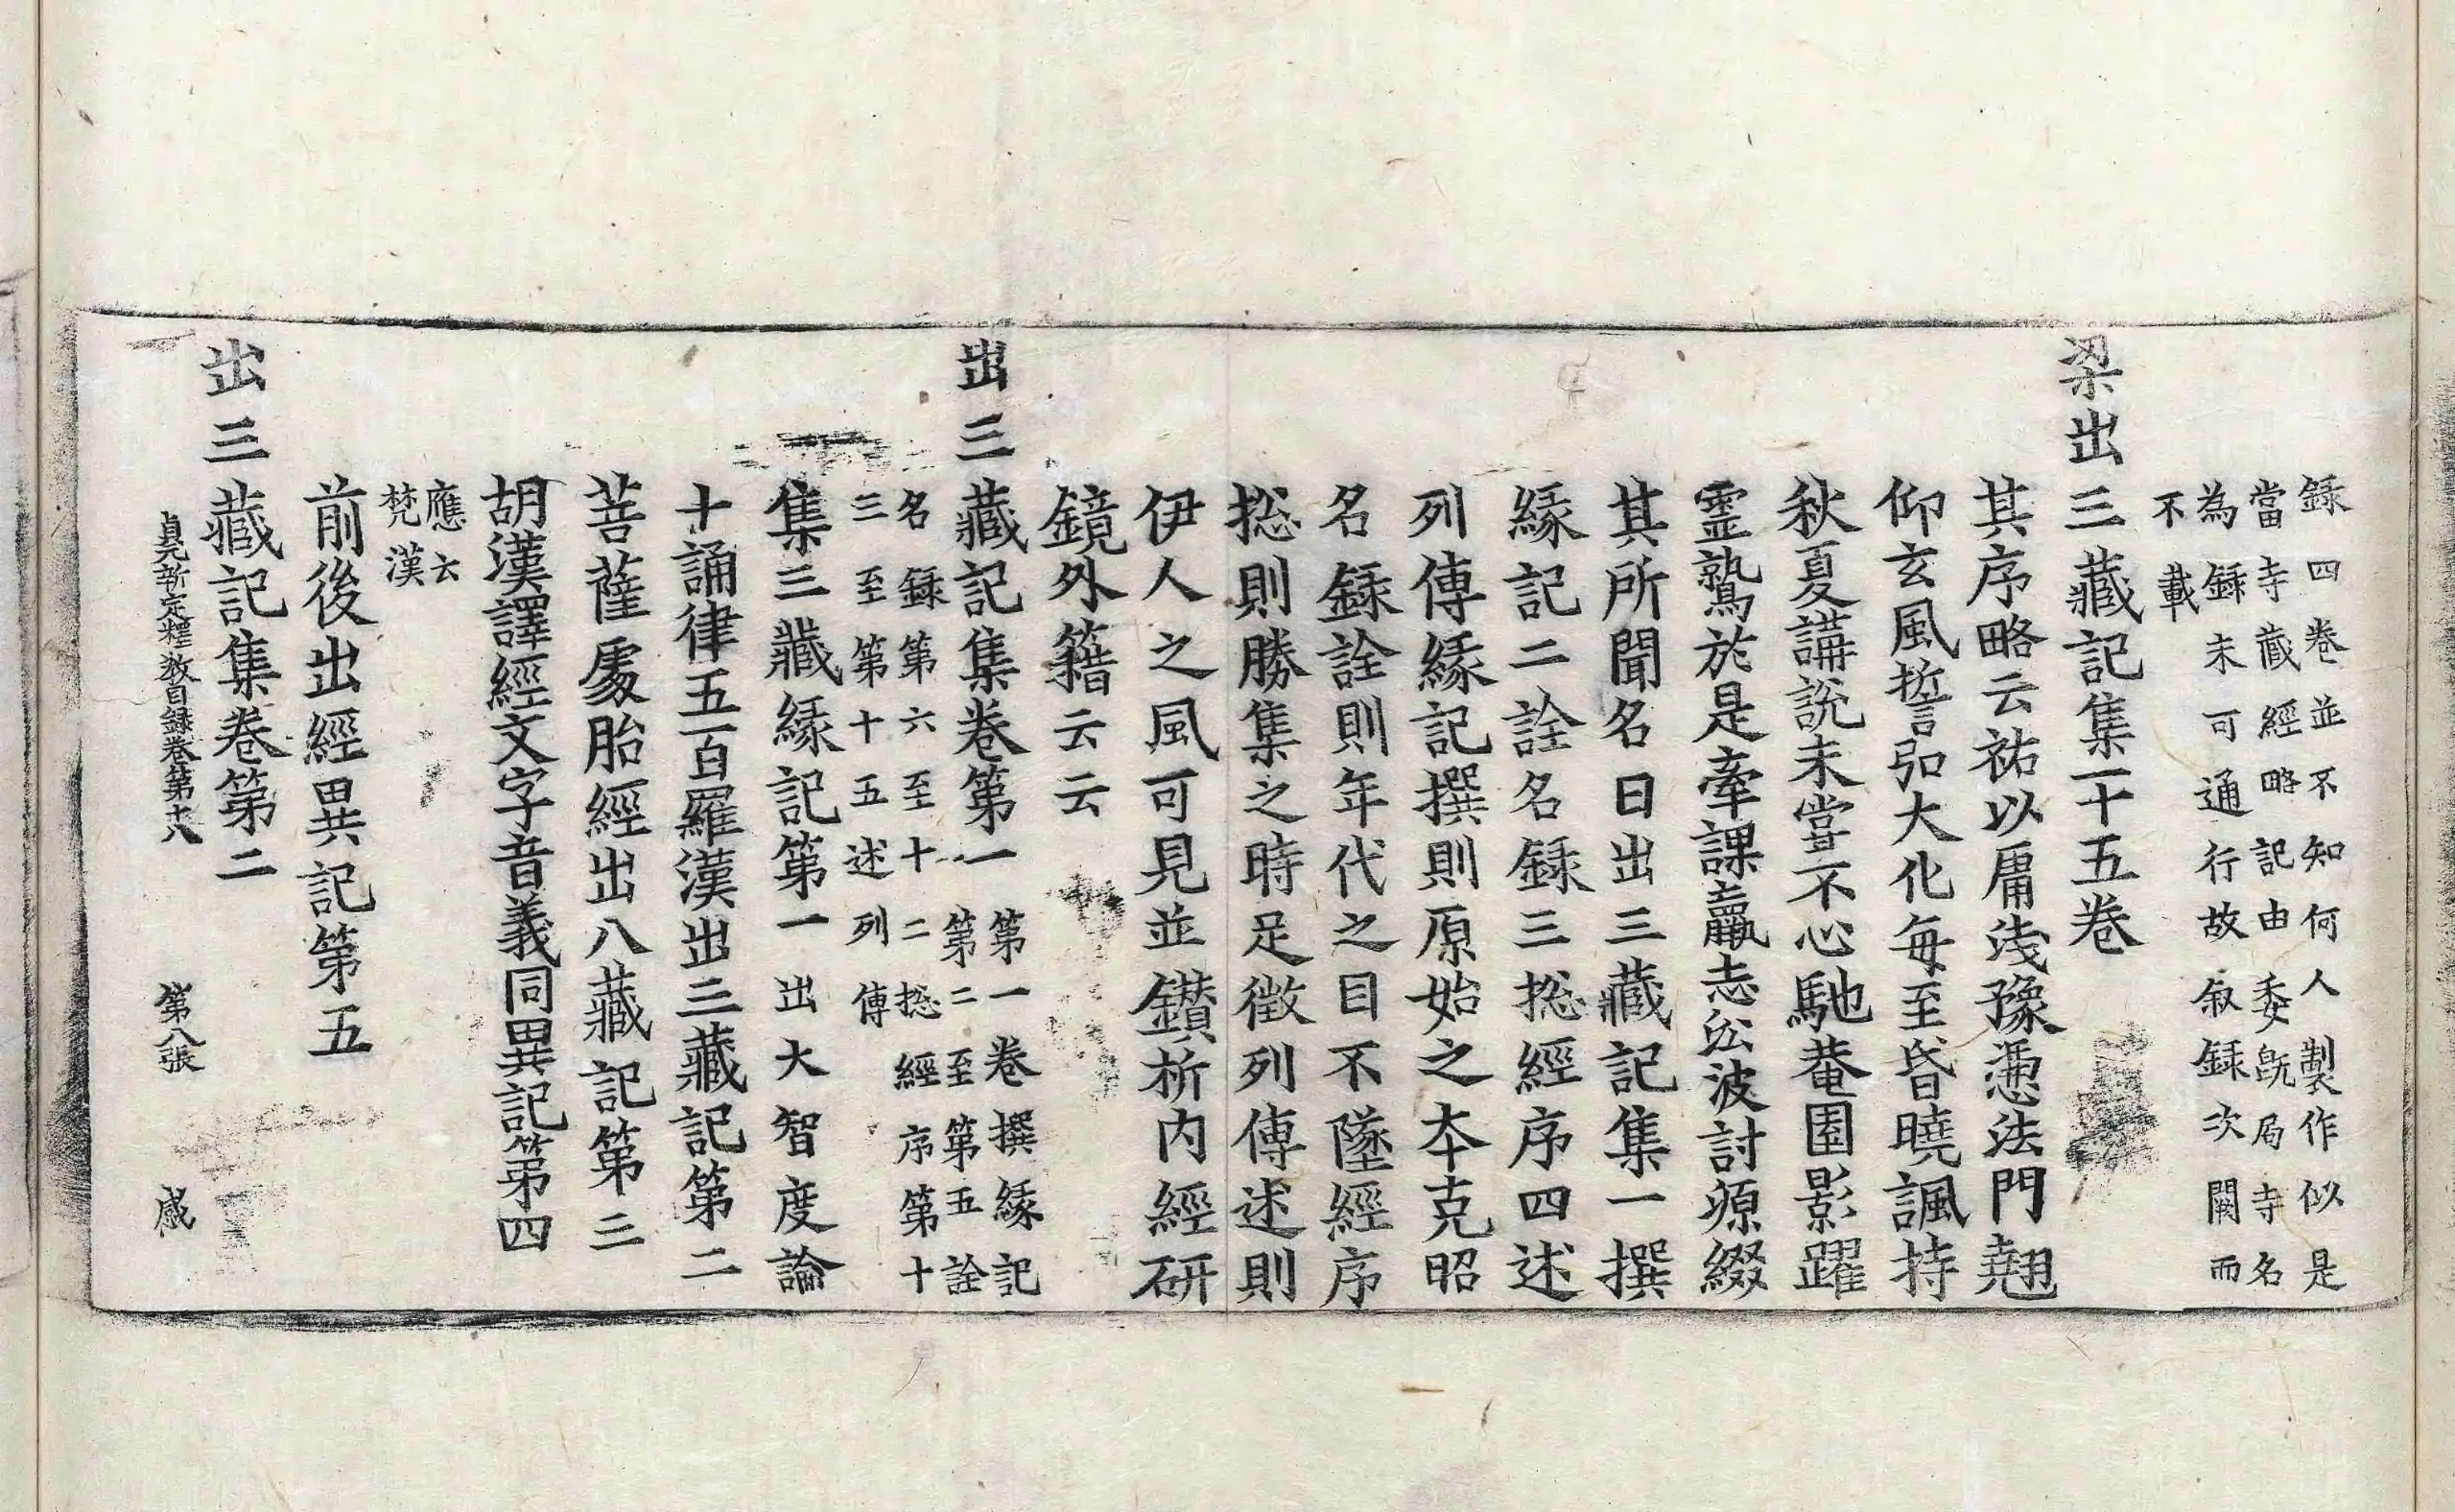 録四卷並不知何人製作似是
當寺藏經略記由委旣局寺名
為録未可通行故叙録次闕而
不載
梁出三藏記集一十五卷
其序略云祐以庸淺豫憑法門翹
仰玄風誓弘大化每至昏曉諷持
秋夏講說未嘗不心馳菴園影躍
靈鷲於是牽課羸志㳂波討源綴
其所聞名曰出三藏記集一撰
緣記二詮名録三㧾經序四述
列傳緣記撰則原始之本克昭
名録詮則年代之目不墜經序
㧾則勝集之時足徵列傳述則
伊人之風可見並鑽析內經研
鏡外籍云云
出三藏記集卷第一
第一卷撰緣記
第二至第五詮
名録第六至十二㧾經序第十
三至第十五述列傳
集三藏緣記第一出大智度論
十誦律五百羅漢出三藏記第二
菩薩處胎經出八藏記第三
胡漢譯經文字音義同異記第四
應云
梵漢
前後出經異記第五
出三藏記集卷第二
貞元新定釋教目録卷第十八 第八張 感